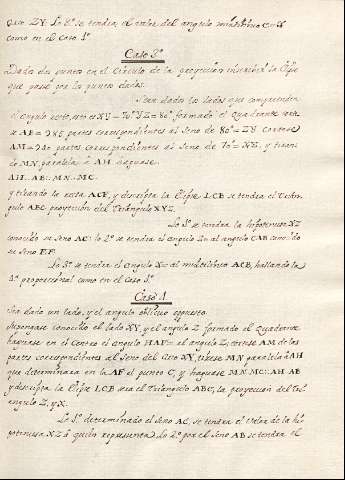 que ZY. Lo 2º se tendra, el valor del angulo
como en el Caso 1º
Caso 3º
Dados dos puntos en el Circulo de la proyeccion inscribir la Elipse
que pase por los puntos dados.
Sean dados los lados que comprenden
el angulo recto, esto es XY=70º YZ=80º formado el Quadrante
AB=985 partes correspondientes al Seno de 80º=ZY
AM=940 partes correspondientes al Seno de 70º=XY, y
MN paralela à AH hagase.
AH. AB: MN. MC.
y tirando la recta ACF, y descripta la Elipse LCB se tendra el Trian-
gulo ABC proyeccion del Triangulo XYZ.
Lo 1º se tendra la hipotenusa XZ
conocido su Seno AC: lo 2º se tendra el angulo Z= al angulo CAB conocido
su Seno EF.
Lo 3º se tendra el angulo X= al mistilineo ACB, hallando la
4ª proporcional como en el Caso 1º.
Caso 4
Sea dado un lado, y el angulo obliquo opuesto
Supongase conocido el lado XY, y el angulo Z formado el Quadrante
hagase en el Centro el angulo HAF= al angulo Z; cortese AM de las
partes correspondientes al Seno del Arco XY, tirese MN paralela à AH
que determinara en la AF el punto C, y hagase MN.MC::AH.AB
y descripta la Elipse LCB sera el Triangulo ABC, la proyeccion del
angulo Z, y X.
Lo 1º determinado el Seno AC, se tendra el Valor de la hi-
potenusa XZ à quien representa, Lo 2º por el Seno AB se tendra el